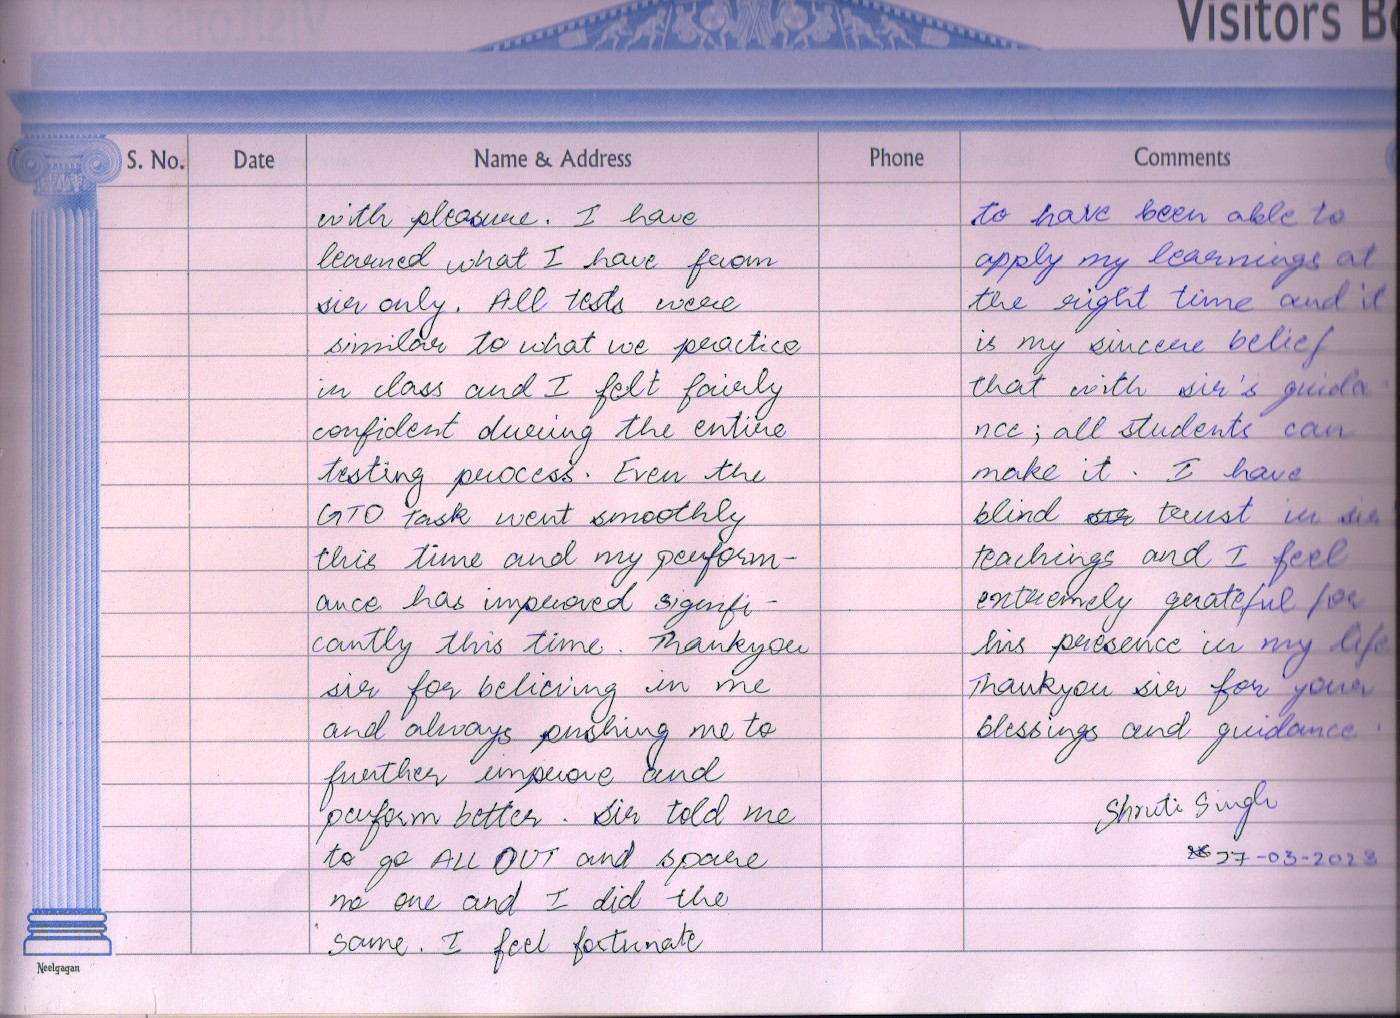 Visitors B
S. No.
Date
Name & Address
Phone
Comments
with pleasure. I have
learned what I have from
sir only. All tests were
similar to what we practice
in class and I felt fairly
confident during the entire
testing process. Even the
GTO Task went smoothly
this time and my perform-
ance has improved signifi-
cantly this time. Thankyou
sir for believing in me
and always pushing me to
further improve and
perform better. Sir told me
to go ALL OUT and spare
no one and I did the
same. I feel fortunate
to have been able to
apply my learnings at
the right time and it
is my sincere belief
that with sir's guida-
nce; all students can
make it. I have
blind trust in sir
teachings and I feel
extremely grateful for
his presence in my life
Thankyou sir for your
blessings and guidance.
Shruti Singh
27-03-2023
Neelgagan